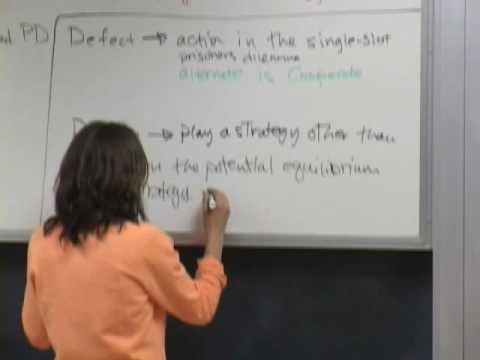 PD
Defect → action in the single-shot
prisoners dilemma
alternate is Cooperate
D → play a strategy other than
the potential equilibrium
rategy